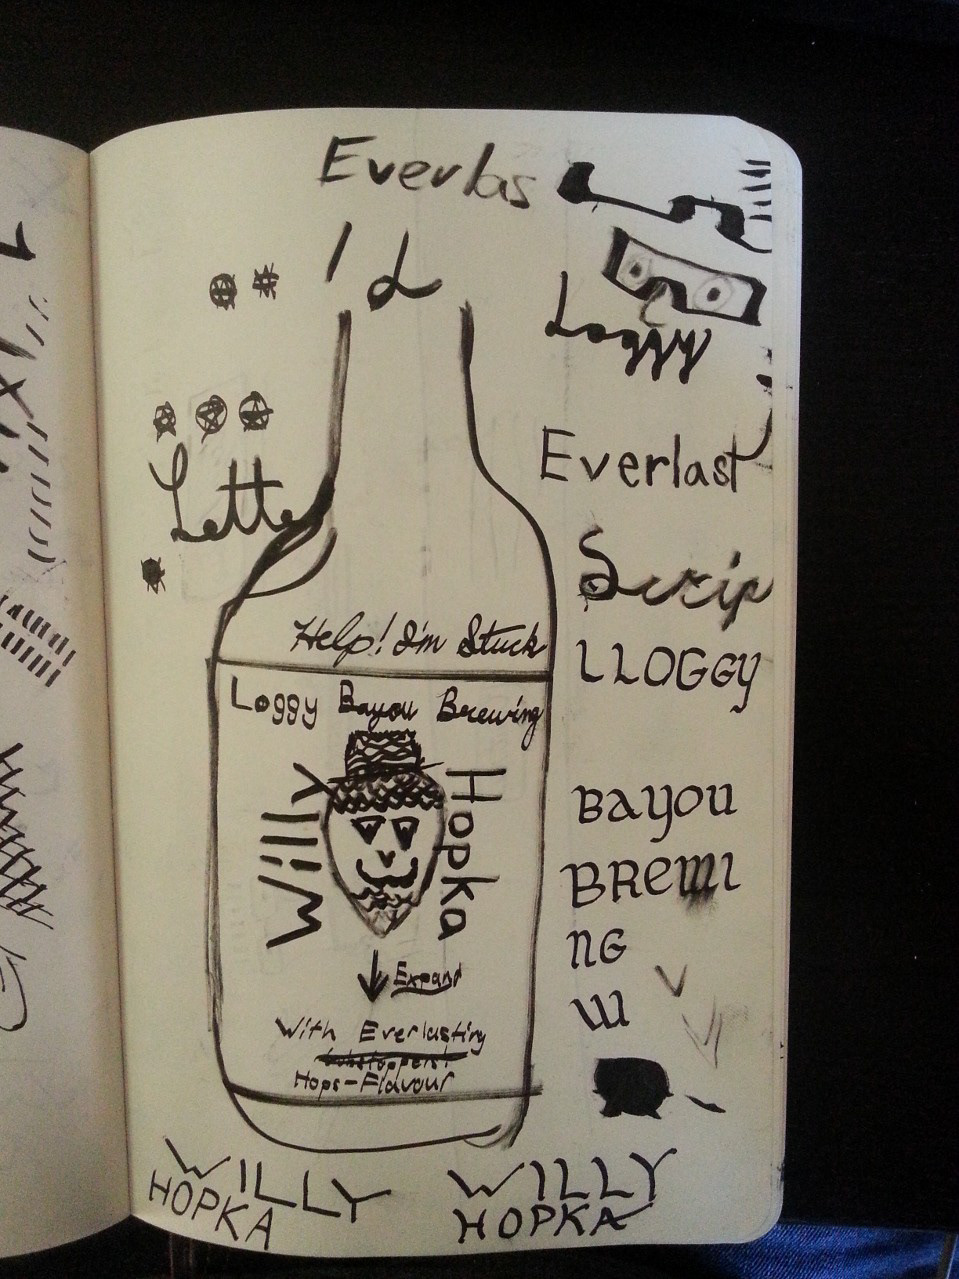 Everlas
Loggy
Everlast
Lette
Scrip
Help! I'm Stuck
LLOGGY
Loggy Bayou Brewing
Willy
Hopka
BAYOU
BREWI
NG
W
Expand
With Everlasting
Hops-Flavour
WILLY
HOPKA
WILLY
HOPKA